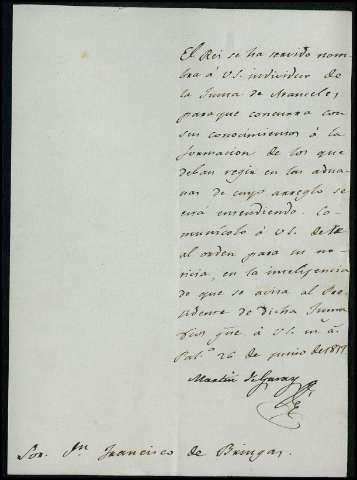 El Rei se ha servido nom-
bra á V.S. individuo de
la Junta de Aranceles,
para que concurra con
sus conocimientos á la
formacion de los que
deban regir en las adua-
nas de cuyo arreglo se
está entendiendo. Co-
munícolo á V.S. de
al orden para su no-
ticia, en la inteligencia
de que se avisa al Pre-
sidente de dicha Junta
Dios gue. á V.S. m. a.
Pal.º 26 de junio de
Martin de Garay
Sor. Dn. Francisco de Bringas.